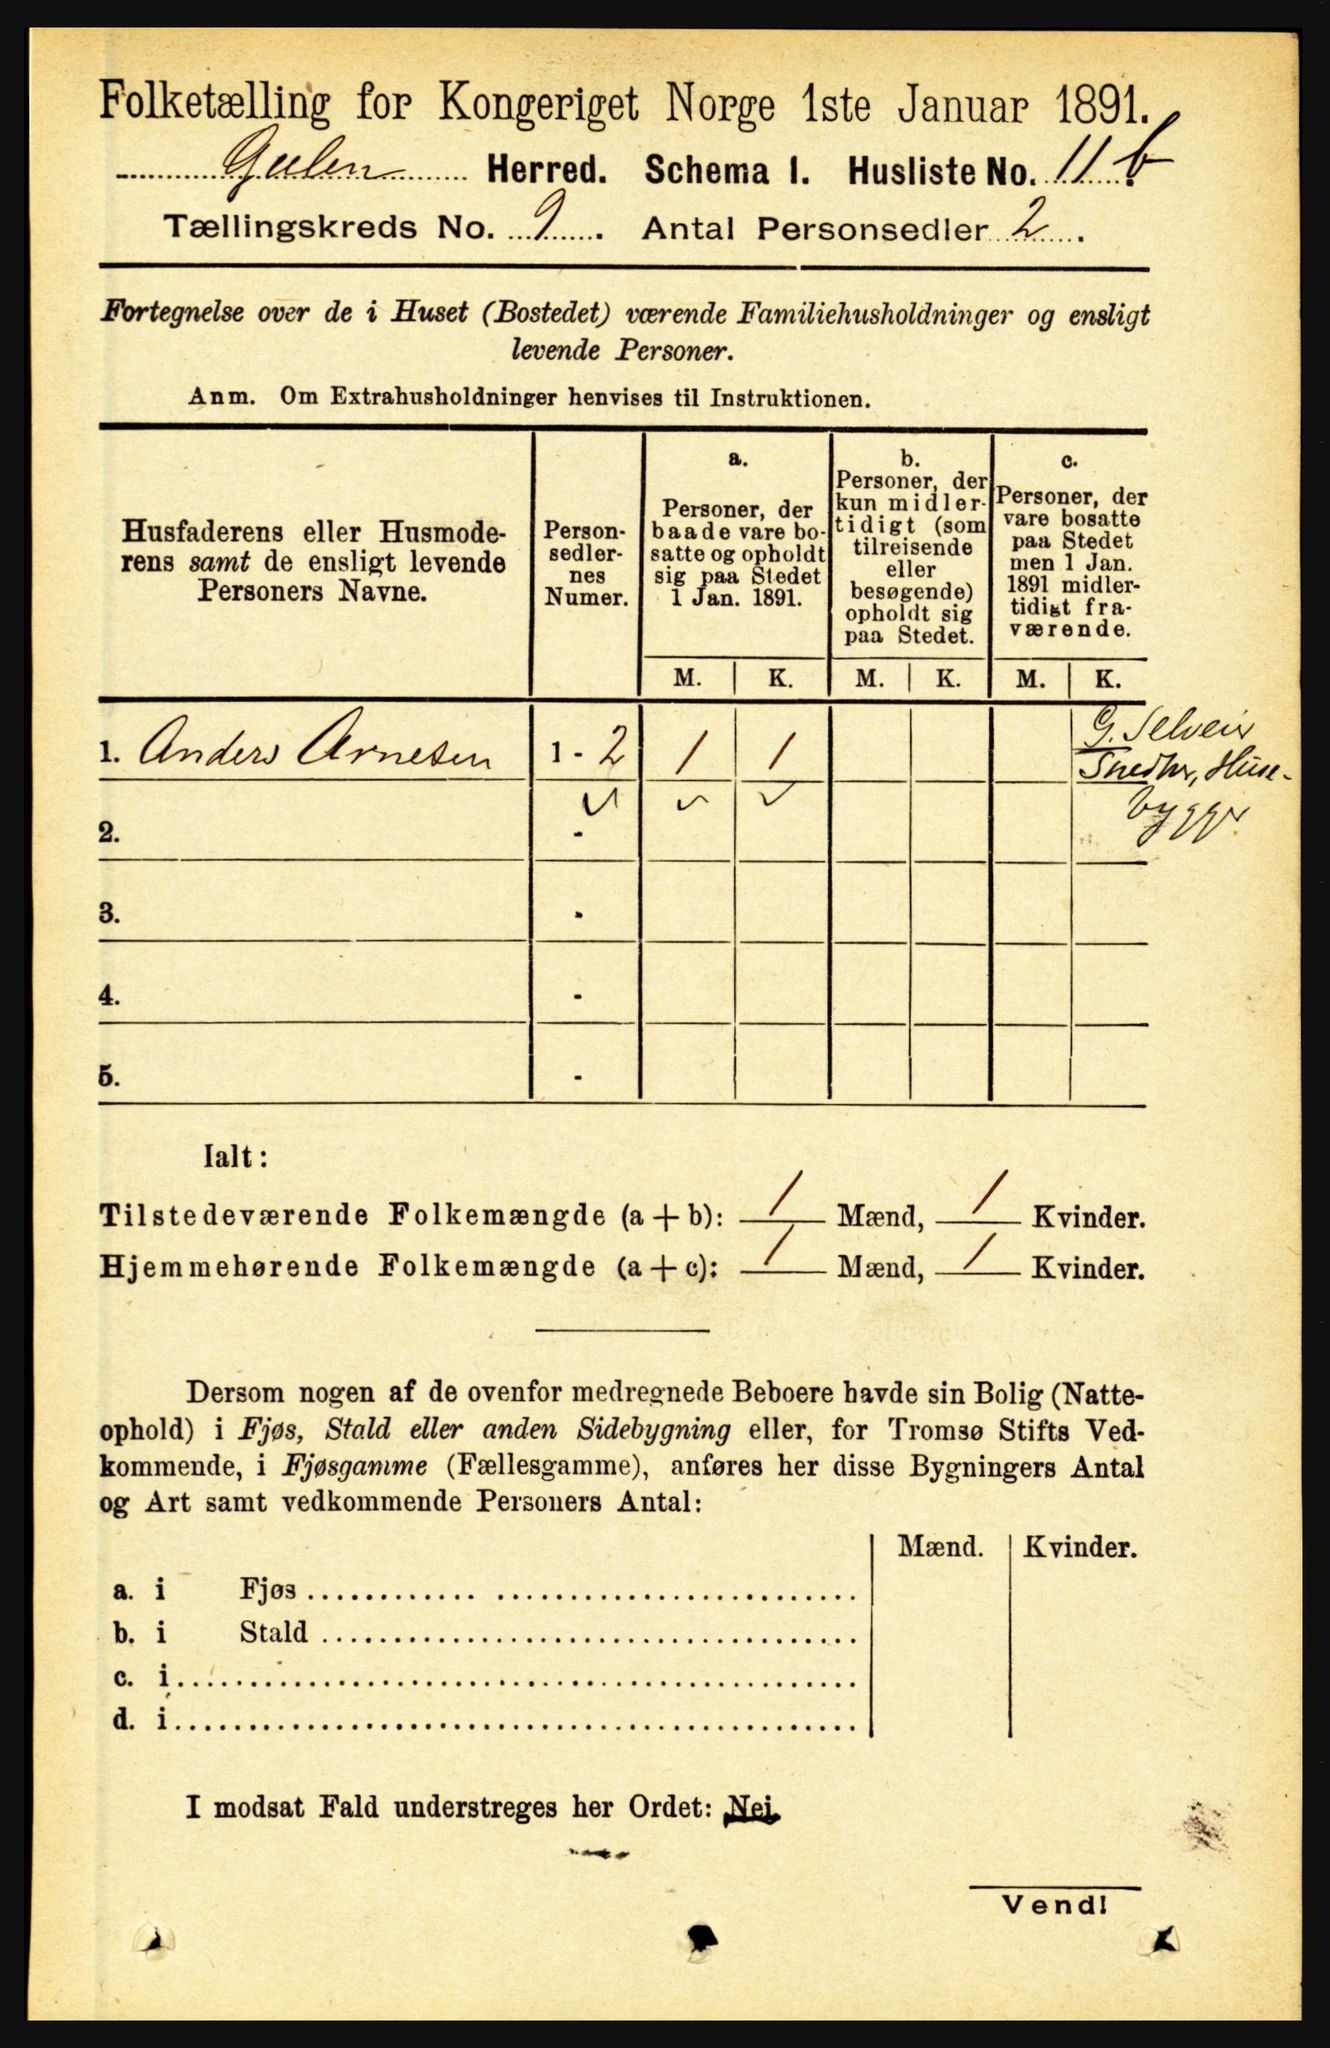 Folketælling for Kongeriget Norge 1ste Januar 1891.
Gulen Herred. Schema I. Husliste No. 11 b
Tællingskreds No. 9. Antal Personsedler 2.
Fortegnelse over de i Huset (Bostedet) værende Familiehusholdninger og ensligt
levende Personer.
Anm. Om Extrahusholdninger henvises til Instruktionen.
Husfaderens eller Husmode-
rens samt de ensligt levende
Personers Navne.
Person-
sedler-
nes
Numer.
a.
Personer, der
baade vare bo-
satte og opholdt
sig paa Stedet
1 Jan. 1891.
b.
Personer, der
kun midler-
tidigt (som
tilreisende
eller
besøgende)
opholdt sig
paa Stedet.
c.
Personer, der
vare bosatte
paa Stedet
men 1 Jan.
1891 midler-
tidigt fra-
værende.
M. K. M. K. M. K.
1. Anders Arnesen 1 - 2 1 1
G. Selveier
Snedker, Huse-
bygger
2. -
3. -
4. -
5. -
Ialt:
Tilstedeværende Folkemængde (a + b): 1 Mænd, 1 Kvinder.
Hjemmehørende Folkemængde (a + c): 1 Mænd, 1 Kvinder.
Dersom nogen af de ovenfor medregnede Beboere havde sin Bolig (Natte-
ophold) i Fjøs, Stald eller anden Sidebygning eller, for Tromsø Stifts Ved-
kommende, i Fjøsgamme (Fællesgamme), anføres her disse Bygningers Antal
og Art samt vedkommende Personers Antal:
Mænd. Kvinder.
a. i Fjøs
b. i Stald
c. i
d. i
I modsat Fald understreges her Ordet: Nei.
Vend!